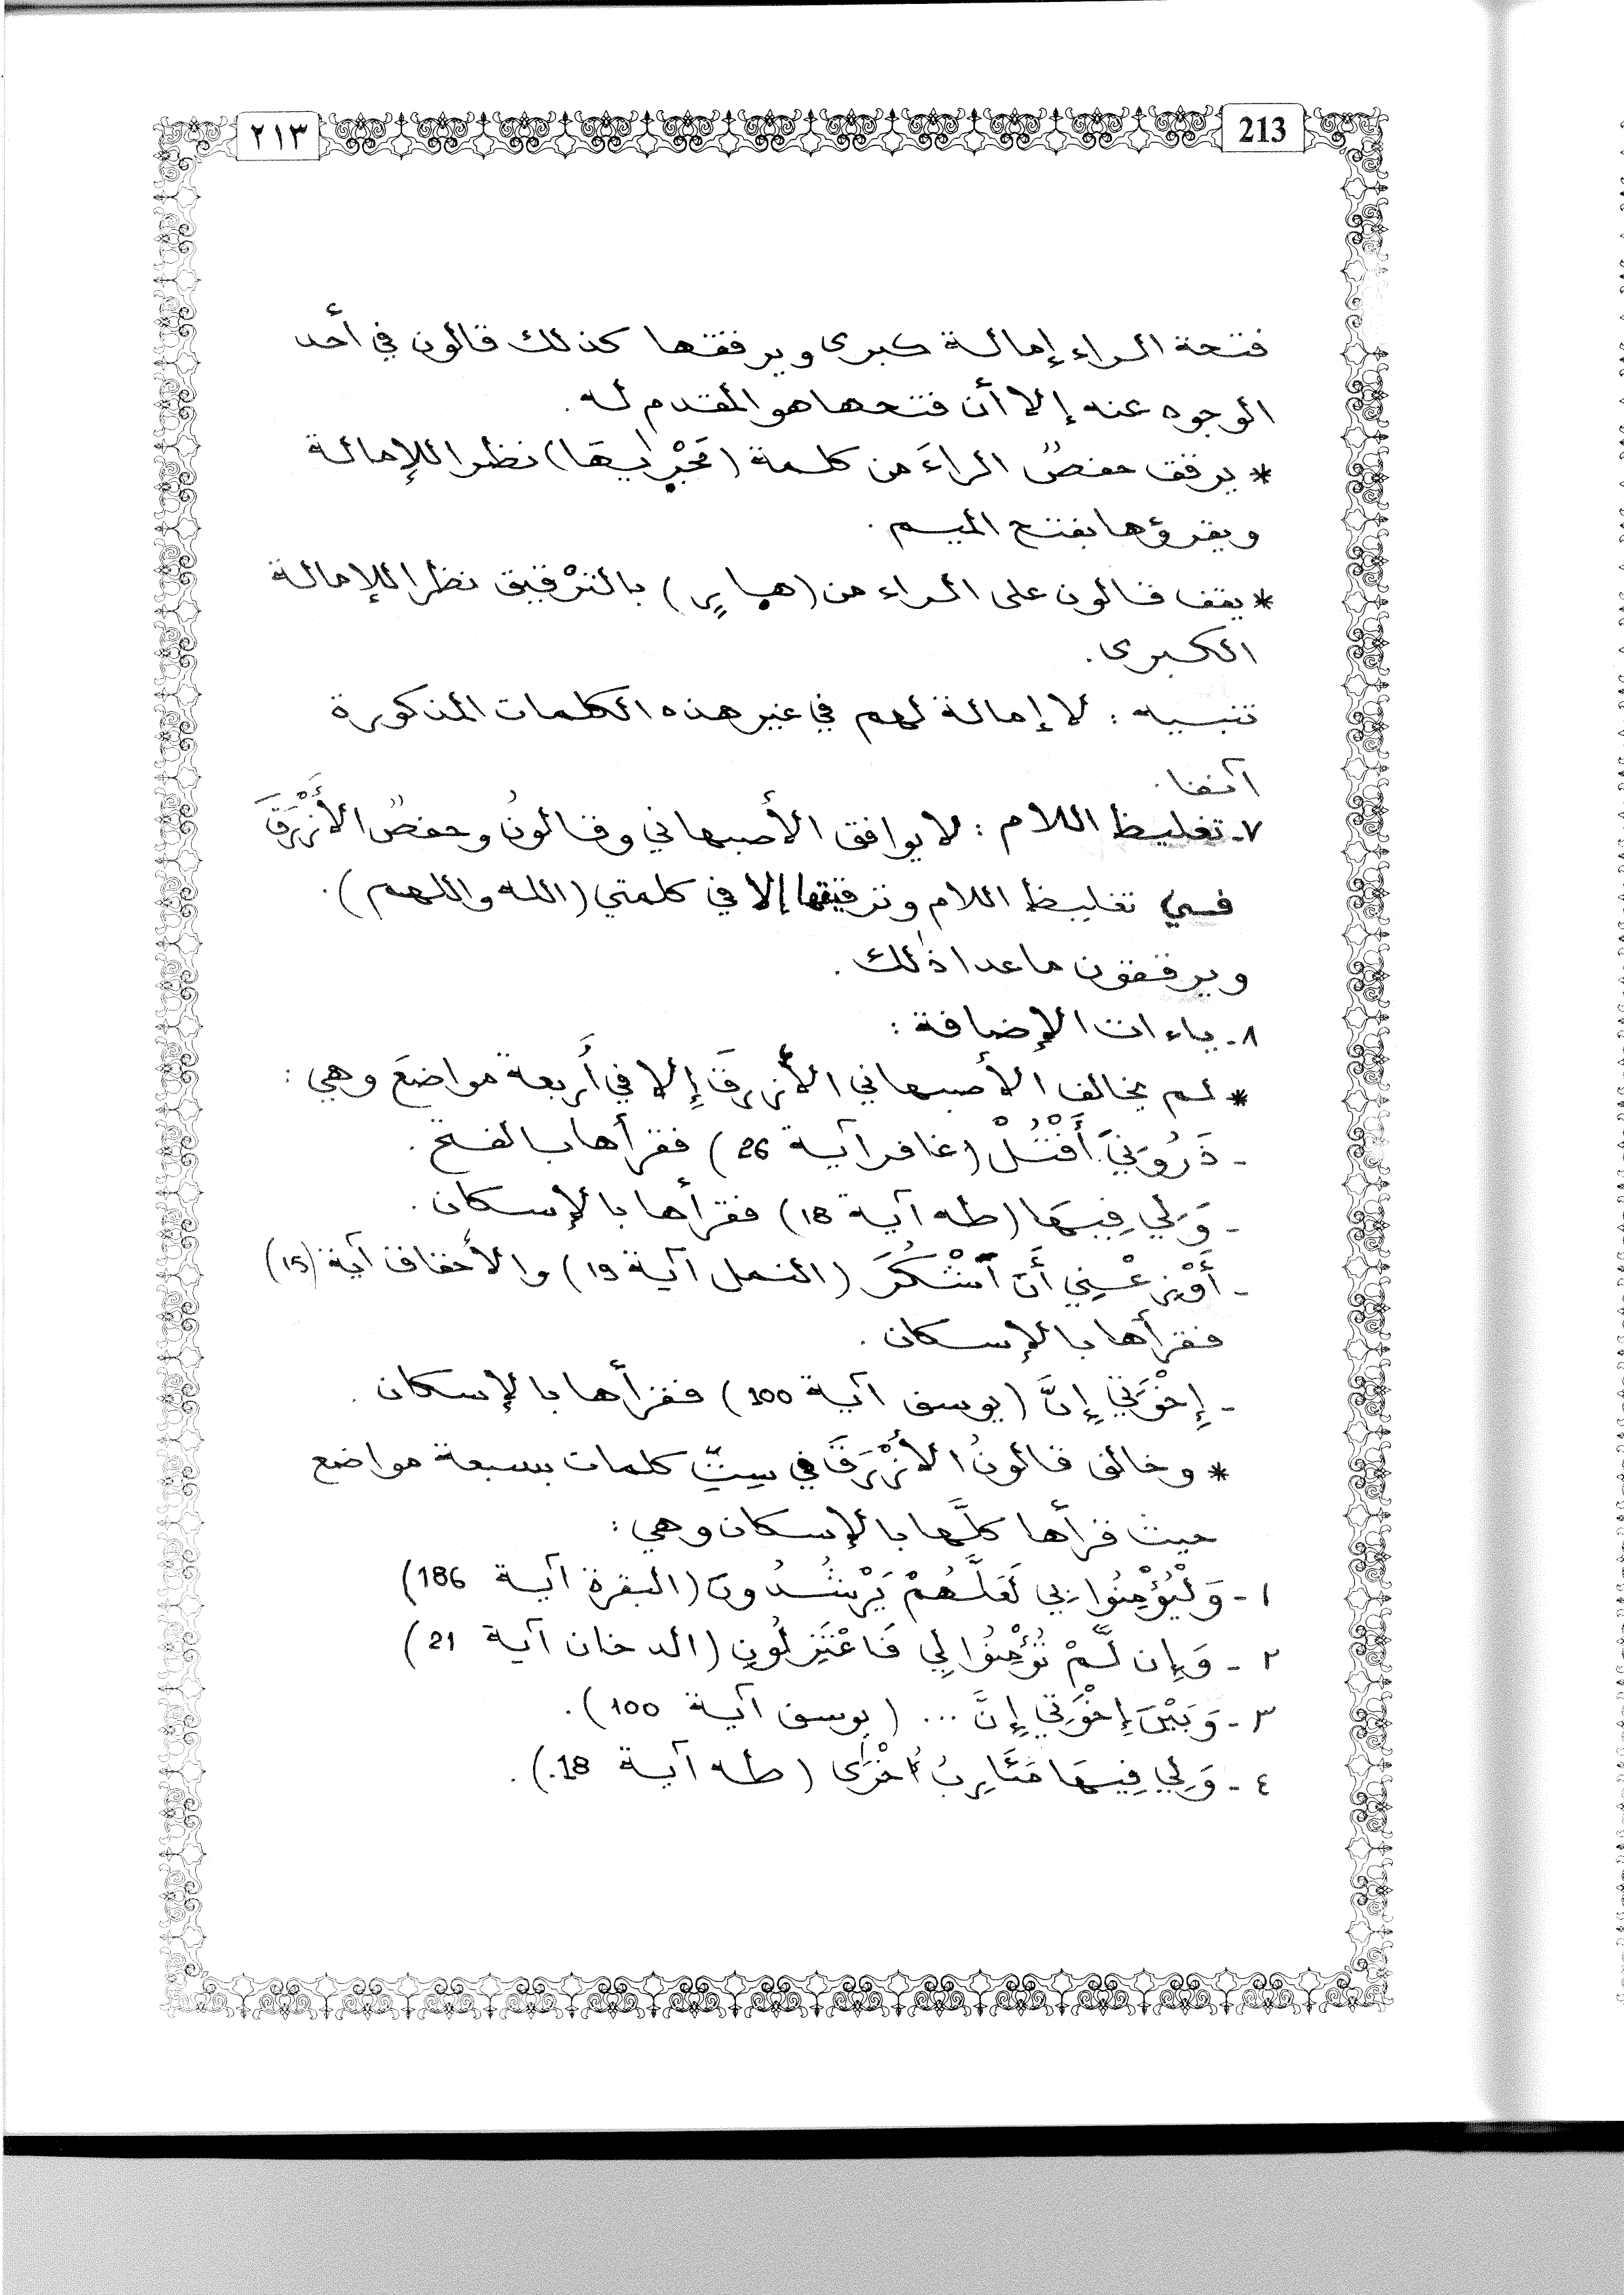 ٢١٣
213
فتحة الراء إمالة كبرى ويرققها كذلك قالون في أحد
الوجوه عنه إلا أن فتحها هو المقدم له.
* يرقق حفصٌ الراءَ من كلمة (مَجْرٜىٰهَا) نظرا للإمالة
ويقرؤها بفتح الميم.
* يقف قالون على الراء من (هٜارٍ) بالترْقيق نظرا للإمالة
الكبرى.
تنبيه : لا إمالة لهم في غير هذه الكلمات المذكورة
آنفا.
٧- تغليظ اللام : لا يوافق الأصبهاني وقالونُ وحفصٌ الأَزْرَقَ
في تغليظ اللام وترقيقها إلا في كلمتي (الله واللهم).
ويرققون ما عدا ذٰلك.
٨- ياءات الإضافة :
* لم يخالف الأصبهاني الأزرقَ إِلا في أَربعة مواضعَ وهي :
- ذَرُونِيَ أَقْتُلْ (غافر آية 26) فقرأها بالفتح.
- وَلِي فِيهَا (طه آية 18) فقرأها بالإسكان.
- أَوْزِعْنِي أَنَ اَشْكُرَ (النمل آية 19) والأحقاف آية (15)
فقرأها بالإسكان.
- إِخْوَتِي إِنَّ (يوسف آية 100) فقرأها بالإسكان.
* وخالف قالونُ الأَزْرَقَ في سِتِّ كلمات بسبعة مواضع
حيث قرأها كلَّها بالإسكان وهي :
١- وَلْيُؤْمِنُوا بِي لَعَلَّهُمْ يَرْشُدُونَ (البقرة آية 186)
٢- وَإِن لَّمْ تُؤْمِنُوا لِي فَاعْتَزِلُونِ (الدخان آية 21)
٣- وَبَيْنَ إِخْوَتِي إِنَّ ... (يوسف آية 100).
٤- وَلِي فِيهَا مَئَارِبُ أُخْرٰى (طه آية 18.).